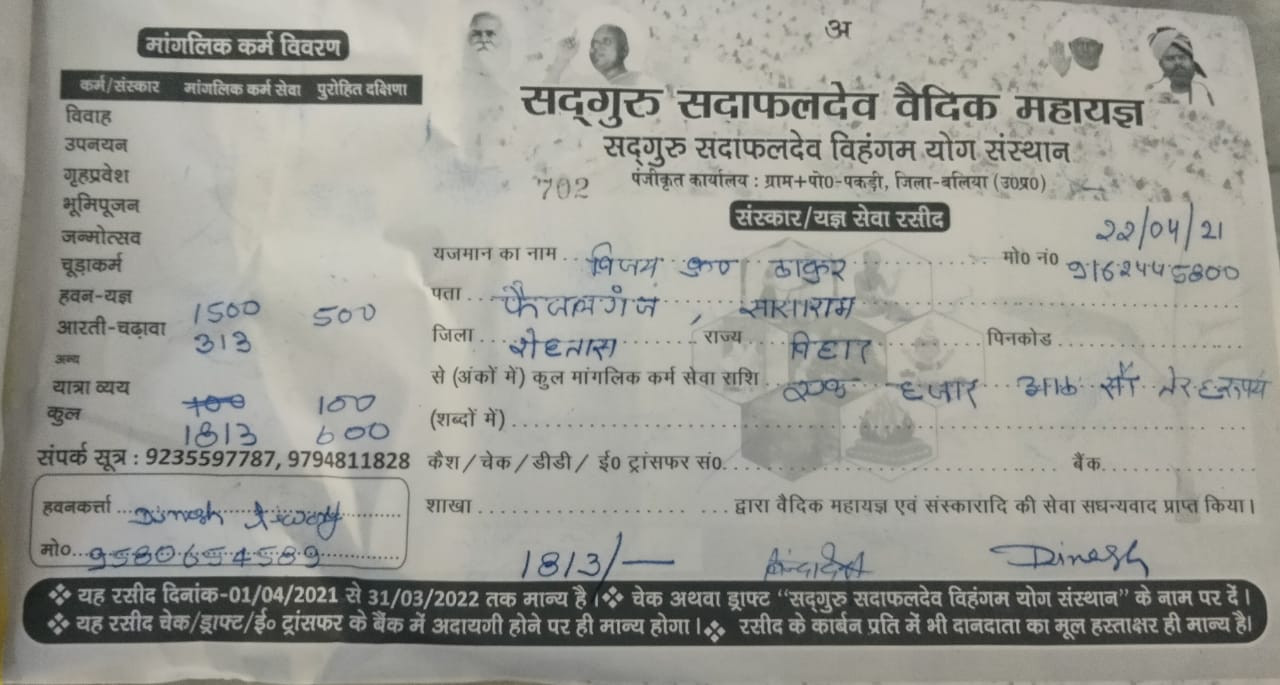 अ
मांगलिक कर्म विवरण
कर्म/संस्कार मांगलिक कर्म सेवा पुरोहित दक्षिणा
विवाह
उपनयन
गृहप्रवेश
भूमिपूजन
जन्मोत्सव
चूड़ाकर्म
हवन-यज्ञ 1500 500
आरती-चढ़ावा 313
अन्य
यात्रा व्यय 100 100
कुल 1813 600
संपर्क सूत्र : 9235597787, 9794811828
हवनकर्त्ता Dinesh
मो० 9580654589
सद्गुरु सदाफलदेव वैदिक महायज्ञ
सद्गुरु सदाफलदेव विहंगम योग संस्थान
702 पंजीकृत कार्यालय : ग्राम+पो०-पकड़ी, जिला-बलिया (उ०प्र०)
संस्कार/यज्ञ सेवा रसीद
22/04/21
यजमान का नाम विजय कु० ठाकुर मो० नं० 9162445800
पता फैजलगंज, सासाराम
जिला रोहतास राज्य बिहार पिनकोड
से (अंकों में) कुल मांगलिक कर्म सेवा राशि एक हजार आठ सौ तेरह रुपये
(शब्दों में)
कैश/चेक/डीडी/ ई० ट्रांसफर सं०. बैंक
शाखा द्वारा वैदिक महायज्ञ एवं संस्कारादि की सेवा सधन्यवाद प्राप्त किया।
1813/- Dinesh
❖ यह रसीद दिनांक-01/04/2021 से 31/03/2022 तक मान्य है। ❖ चेक अथवा ड्राफ्ट "सद्गुरु सदाफलदेव विहंगम योग संस्थान" के नाम पर दें।
❖ यह रसीद चेक/ड्राफ्ट/ई० ट्रांसफर के बैंक में अदायगी होने पर ही मान्य होगा। ❖ रसीद के कार्बन प्रति में भी दानदाता का मूल हस्ताक्षर ही मान्य है।